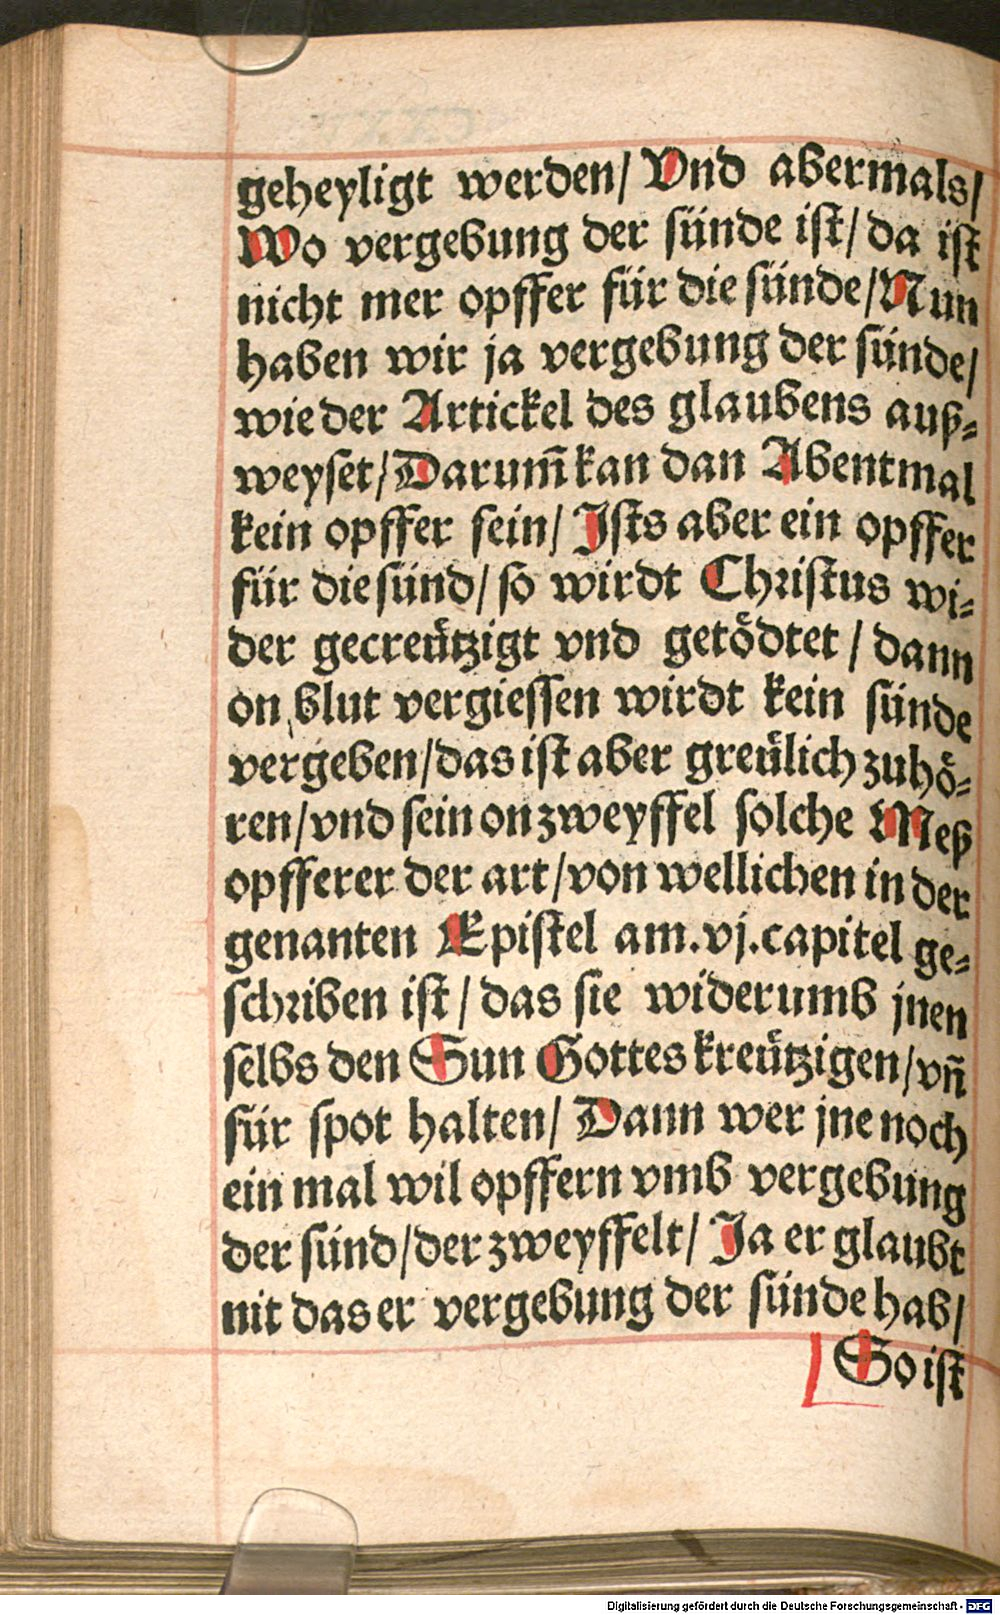 geheyligt werden/ Vnd abermals/
Wo vergebung der sünde ist/ da ist
nicht mer opffer für die sünde/ Nun
haben wir ja vergebung der sünde/
wie der Artickel des glaubens auß-
weyset/ Darum̃ kan dan Abentmal
kein opffer sein/ Ists aber ein opffer
für die sünd/ so wirdt Christus wi-
der gecreützigt vnd getödtet/ dann
on blut vergiessen wirdt kein sünde
vergeben/ das ist aber greülich zuhö-
ren/ vnd sein on zweyffel solche Meß
opfferer der art/ von wellichen in der
genanten Epistel am.vj.capitel ge-
schriben ist/ das sie widerumb jnen
selbs den Sun Gottes kreützigen/ vñ
für spot halten/ Dann wer jne noch
ein mal wil opffern vmb vergebung
der sünd/ der zweyffelt/ Ja er glaubt
nit das er vergebung der sünde hab/
So ist
Digitalisierung gefördert durch die Deutsche Forschungsgemeinschaft - DFG